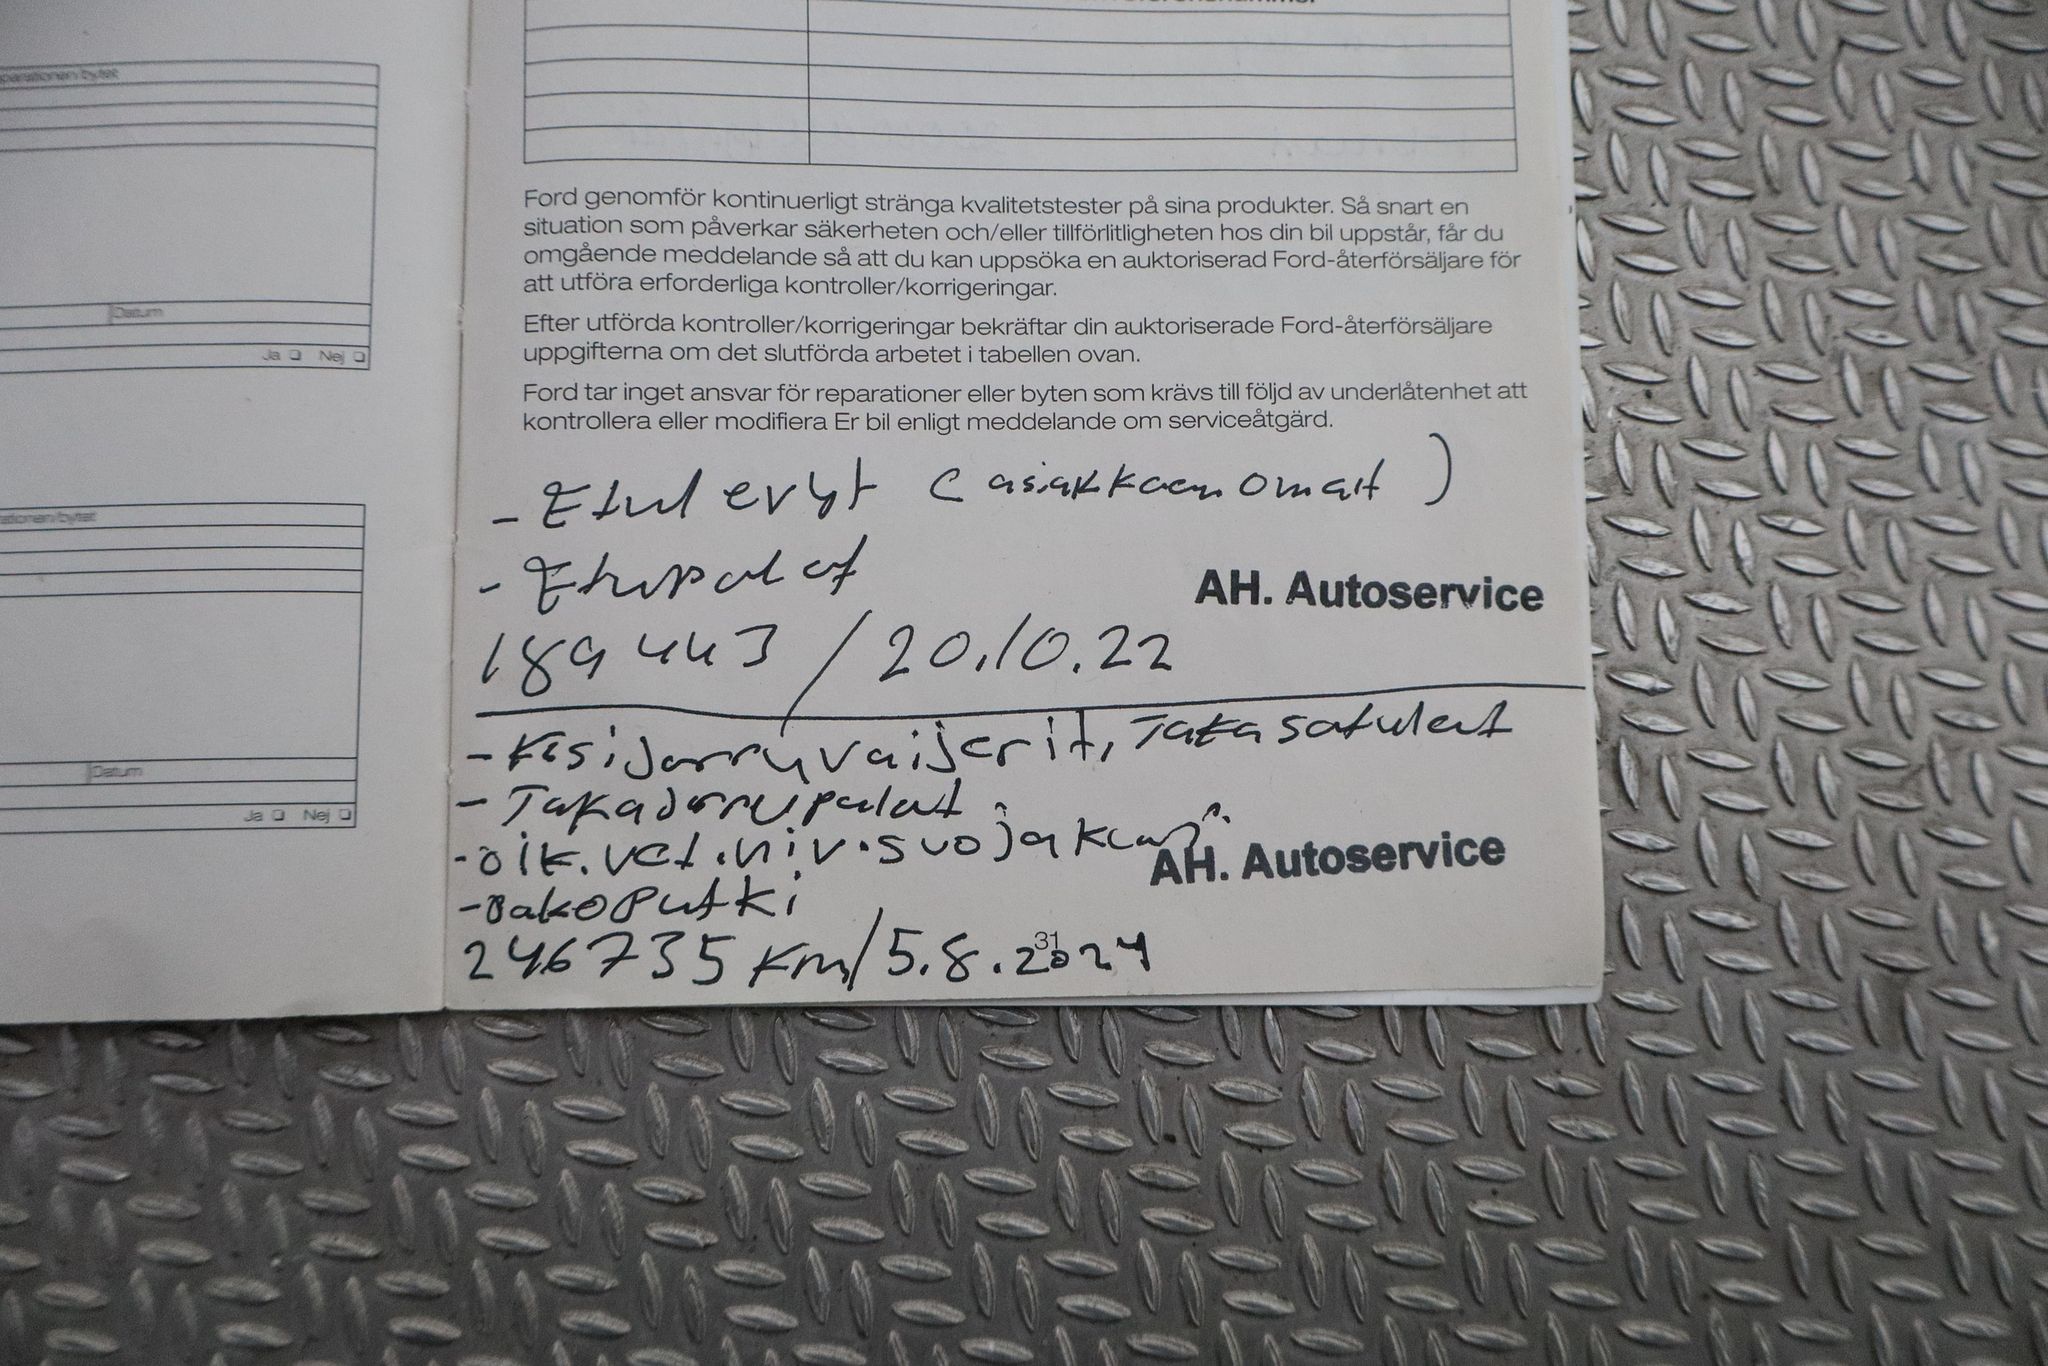 Datum
Ja Nej
Datum
Ja Nej
Ford genomför kontinuerligt stränga kvalitetstester på sina produkter. Så snart en
situation som påverkar säkerheten och/eller tillförlitligheten hos din bil uppstår, får du
omgående meddelande så att du kan uppsöka en auktoriserad Ford-återförsäljare för
att utföra erforderliga kontroller/korrigeringar.
Efter utförda kontroller/korrigeringar bekräftar din auktoriserade Ford-återförsäljare
uppgifterna om det slutförda arbetet i tabellen ovan.
Ford tar inget ansvar för reparationer eller byten som krävs till följd av underlåtenhet att
kontrollera eller modifiera Er bil enligt meddelande om serviceåtgärd.
- Etulevyt (asiakkaan omat)
- Etupalat
AH. Autoservice
189 443 / 20.10.22
- Käsijarruvaijerit, Takasatulat
- Takajarrupalat
- oik.vet.niv.suojakumi
AH. Autoservice
- Pakoputki
246735 km/5.8.2024
31